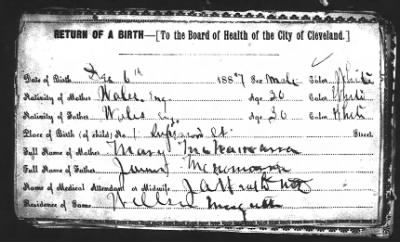 RETURN OF A BIRTH—[To the Board of Health of the City of Cleveland.]
Date of Birth, Dec 6th 1887 Sex Male Color White
Nativity of Mother Wales Eng. Age 30 Color White
Nativity of Father Wales Eng. Age 30 Color White
Place of Birth (of child) No. 1 St. Street
Full Name of Mother Mary McNamara
Full Name of Father James McNamara
Name of Medical Attendant or Midwife
Residence of Same